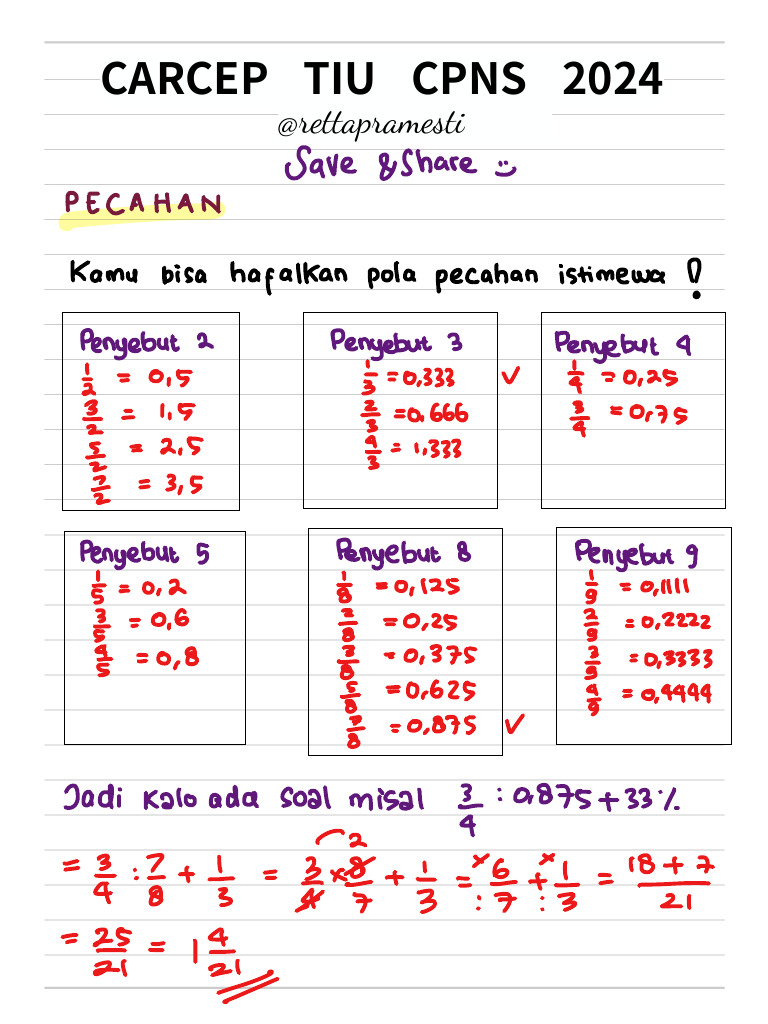 CARCEP TIU CPNS 2024
@rettapramesti
Save & Share
PECAHAN
Kamu bisa hafalkan pola pecahan istimewa !
Penyebut 2
1/2 = 0,5
3/2 = 1,5
5/2 = 2,5
7/2 = 3,5
Penyebut 3
1/3 = 0,333 ✓
2/3 = 0,666
4/3 = 1,333
Penyebut 4
1/4 = 0,25
3/4 = 0,75
Penyebut 5
1/5 = 0,2
3/5 = 0,6
4/5 = 0,8
Penyebut 8
1/8 = 0,125
2/8 = 0,25
3/8 = 0,375
5/8 = 0,625
7/8 = 0,875 ✓
Penyebut 9
1/9 = 0,1111
2/9 = 0,2222
3/9 = 0,3333
4/9 = 0,4444
Jadi kalo ada soal misal 3/4 : 0,875 + 33%
= 3/4 : 7/8 + 1/3 = 3/4 × 8/7 + 1/3 = 6/7 + 1/3 = 18 + 7/21
= 25/21 = 1 4/21